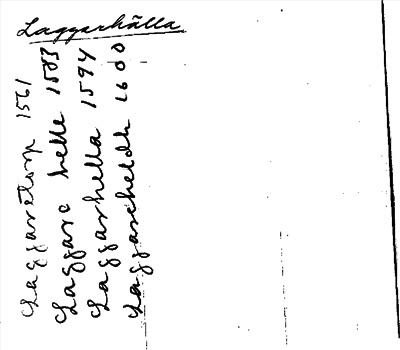 Laggarhälla
Laggaretorp 1561
Laggare helle 1583
Laggarhella 1594
Laggarehelde 1600